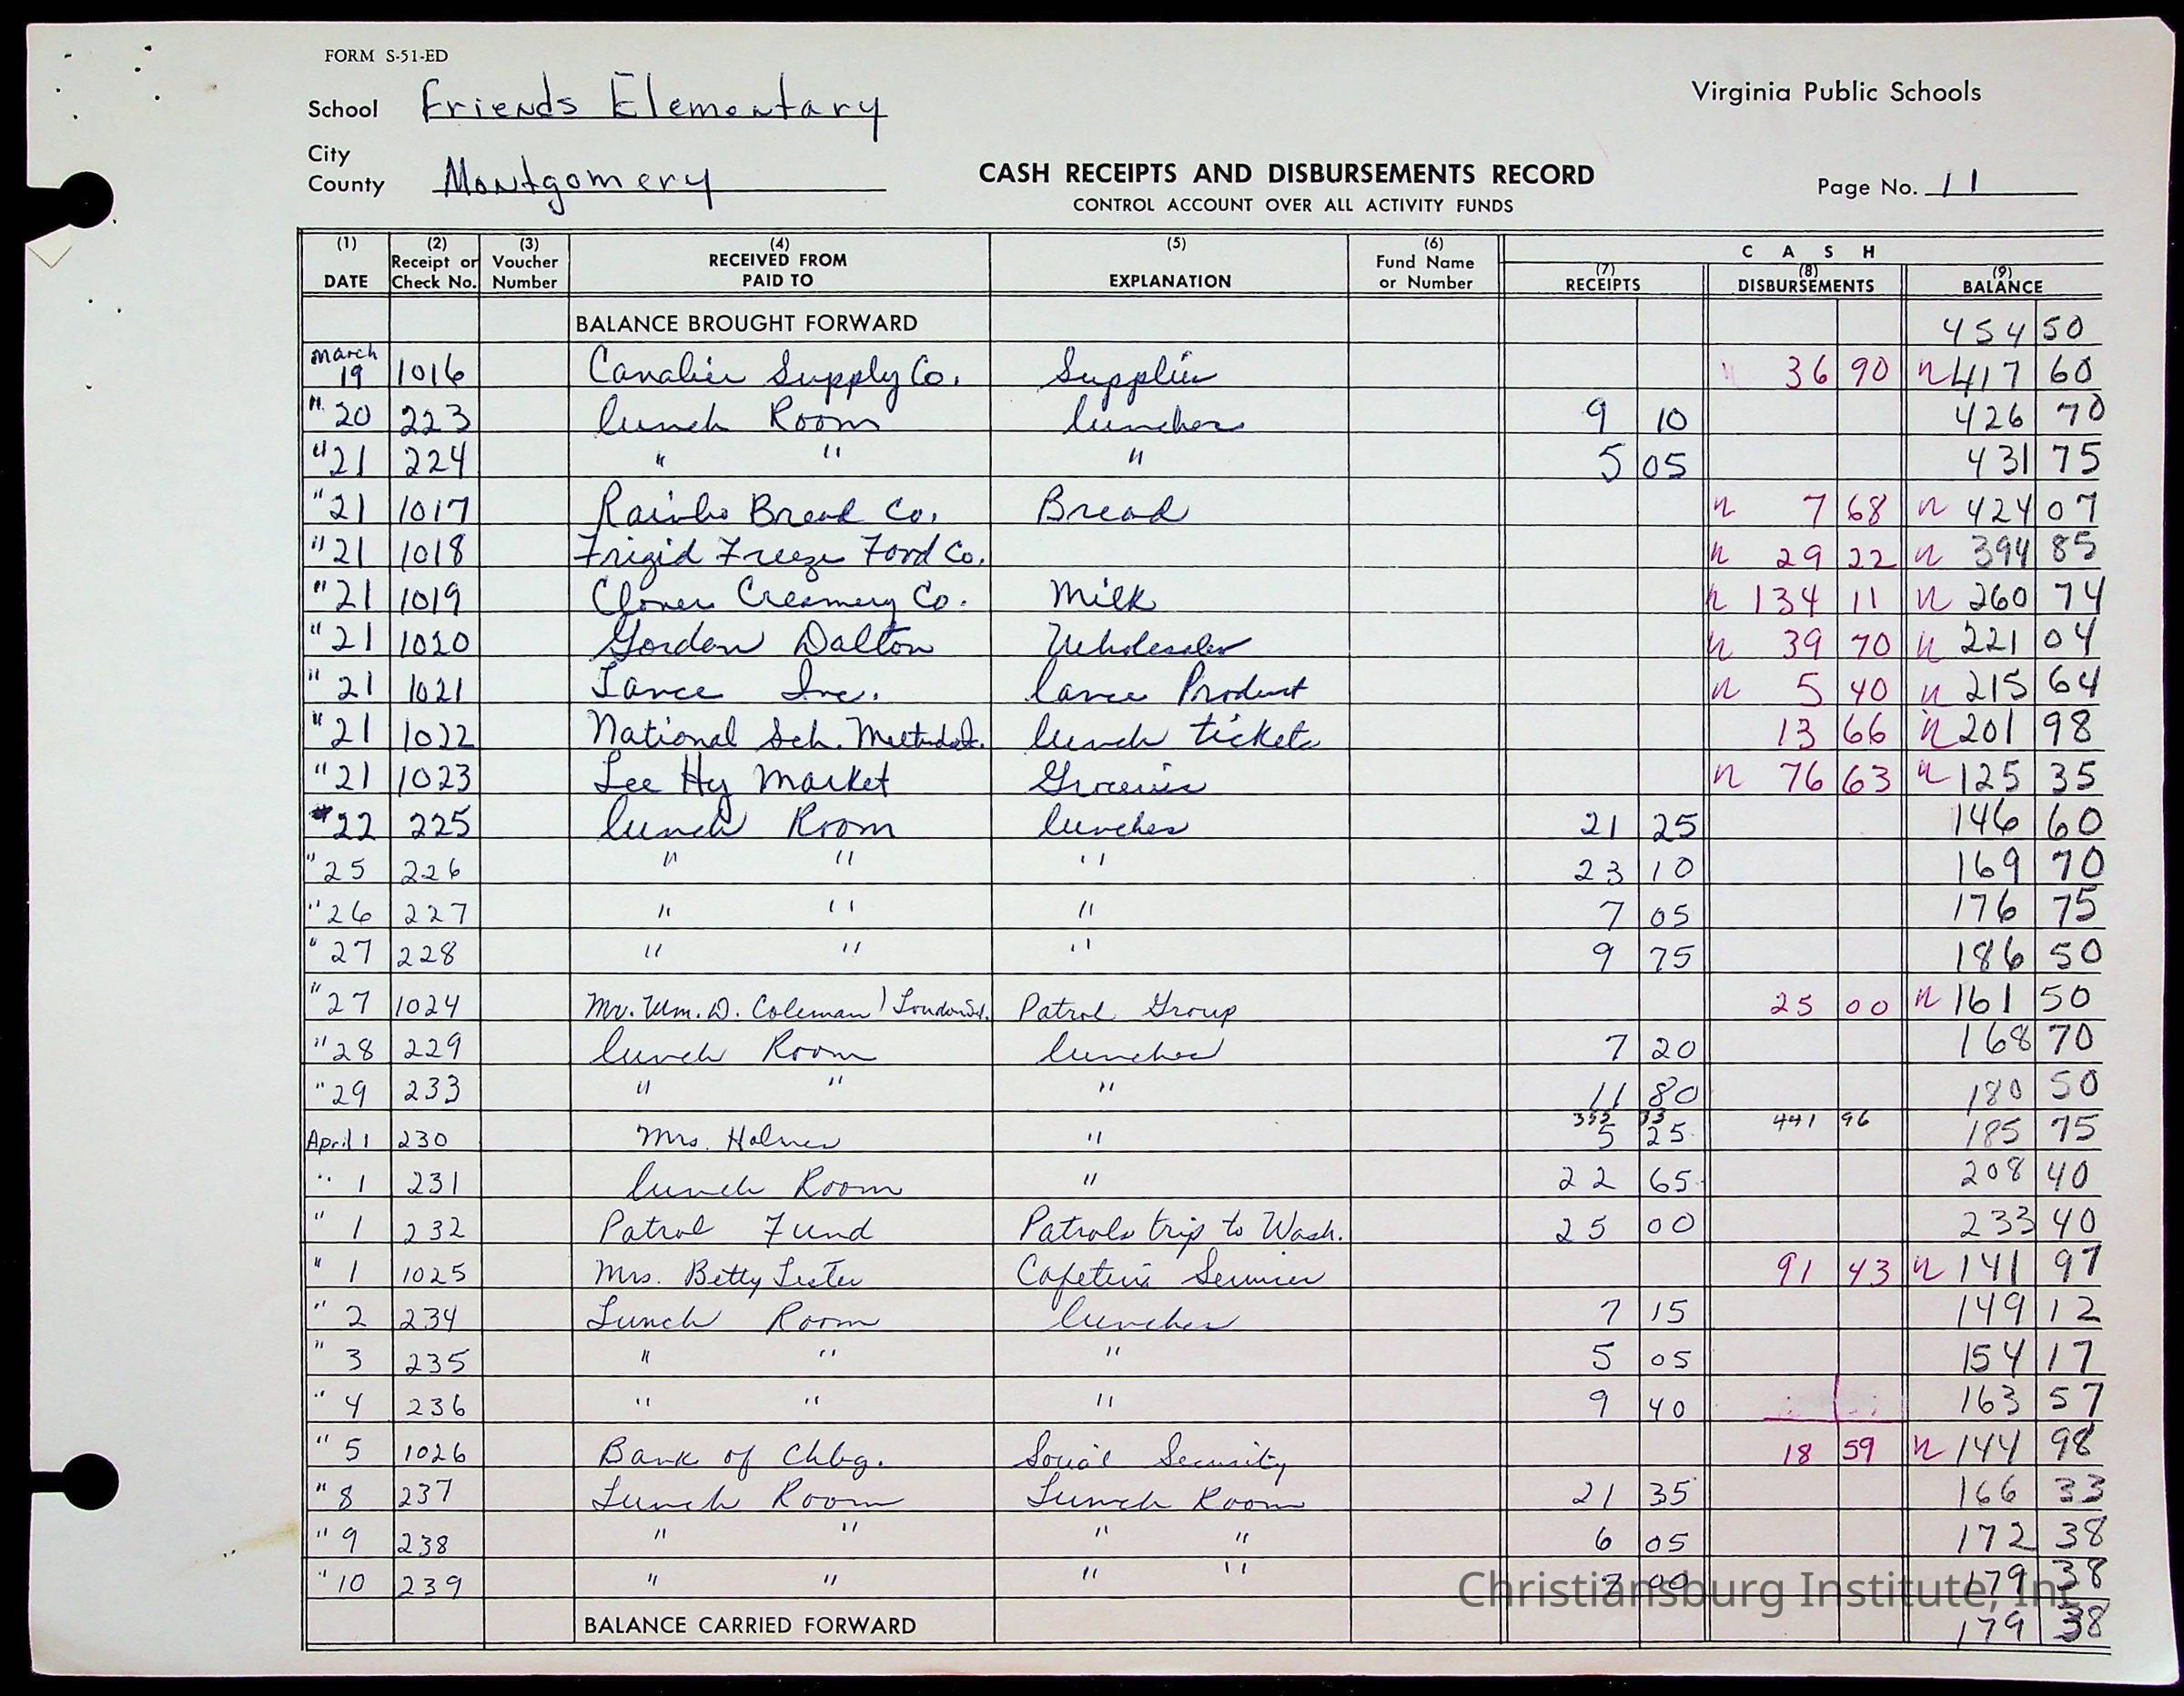 FORM S-51-ED
School Friends Elementary
Virginia Public Schools
City
County Montgomery
CASH RECEIPTS AND DISBURSEMENTS RECORD
Page No. 11
CONTROL ACCOUNT OVER ALL ACTIVITY FUNDS
(1) DATE (2) Receipt or Check No. (3) Voucher Number (4) RECEIVED FROM PAID TO (5) EXPLANATION (6) Fund Name or Number CASH (7) RECEIPTS (8) DISBURSEMENTS (9) BALANCE
BALANCE BROUGHT FORWARD 454 50
March 19 1016 Cavalier Supply Co. Supplies 36 90 417 60
" 20 223 lunch Room lunches 9 10 426 70
" 21 224 " " " 5 05 431 75
" 21 1017 Rainbo Bread Co. Bread 7 68 424 07
" 21 1018 Frigid Freeze Food Co. 29 22 394 85
" 21 1019 Clover Creamery Co. Milk 134 11 260 74
" 21 1020 Gordon Dalton Wholesaler 39 70 221 04
" 21 1021 Lance Inc. lance Product 5 40 215 64
" 21 1022 National Sch. lunch tickets 13 66 201 98
" 21 1023 Lee Hy Market Groceries 76 63 125 35
" 22 225 lunch Room lunches 21 25 146 60
" 25 226 " " " 23 10 169 70
" 26 227 " " " 7 05 176 75
" 27 228 " " " 9 75 186 50
" 27 1024 Mr. Wm. D. Coleman Patrol Group 25 00 161 50
" 28 229 lunch Room lunches 7 20 168 70
" 29 233 " " " 11 80 180 50
353 33 441 96
April 1 230 Mrs. Holmes " 5 25 185 75
" 1 231 lunch Room " 22 65 208 40
" 1 232 Patrol Fund Patrols trip to Wash. 25 00 233 40
" 1 1025 Mrs. Betty Lester Cafeteria Services 91 43 141 97
" 2 234 Lunch Room lunches 7 15 149 12
" 3 235 " " " 5 05 154 17
" 4 236 " " " 9 40 163 57
" 5 1026 Bank of Chbg. Social Security 18 59 144 98
" 8 237 Lunch Room Lunch Room 21 35 166 33
" 9 238 " " " " 6 05 172 38
" 10 239 " " " " 7 00 179 38
Christiansburg Institute, Inc
BALANCE CARRIED FORWARD 179 38